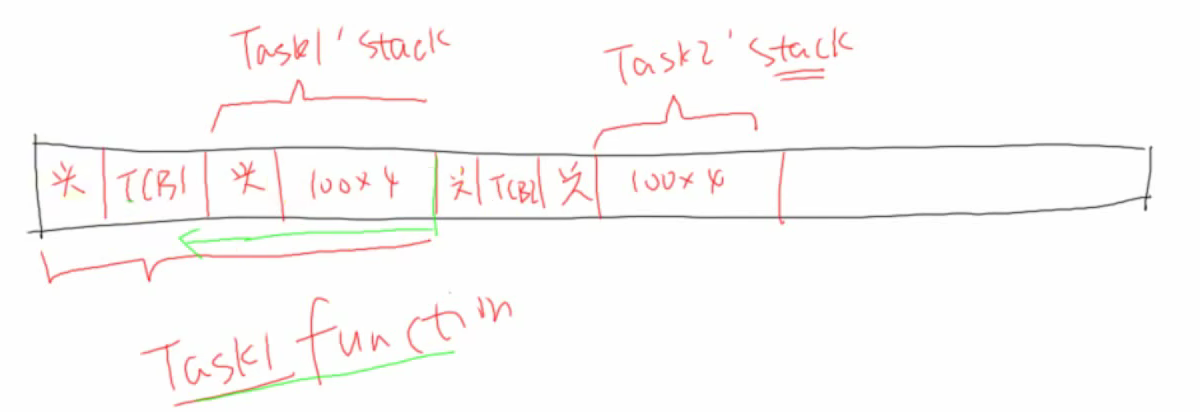 Task1' stack
Task2' stack
头 TCB1 头 100×4 头 TCB2 头 100×4
Task1 function